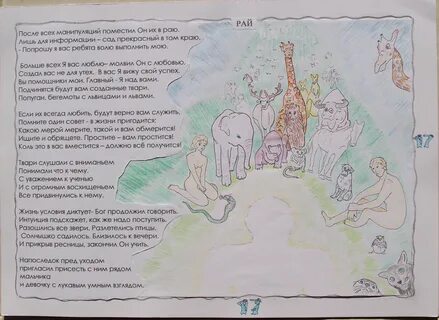 РАЙ
После всех манипуляций поместил Он их в раю.
Лишь для информации – сад прекрасный в том краю.
- Попрошу я вас ребята волю выполнить мою.
Больше всех Я вас люблю- молвил Он с любовью.
Создал вас не для утех. В вас Я вижу свой успех.
Вы помощники мои. Главный - Я над вами.
Подчинятся будут вам созданные твари.
Попугаи, бегемоты с львицами и львами.
Если их всегда любить, будут верно вам служить.
Помните один совет - в жизни пригодится:
Какою мерой мерите, такой и вам обмерится!
Ищите и обрящете. Простите – вам простится!
Коль это в вас вместится – должно всё получится!
Твари слушали с вниманьем
Понимали что к чему.
С уважением к ученью
И с огромным восхищеньем
Все придвинулись к нему.
Жизнь условия диктует- Бог продолжил говорить.
Интуиция подскажет, как же надо поступить.
Разошлись все звери. Разлетелись птицы.
Солнышко садилось. Близилось к вечери.
И прикрыв ресницы, закончил Он учить.
Напоследок пред уходом
пригласил присесть с ним рядом
мальчика
и девочку с лукавым умным взглядом.
17
17